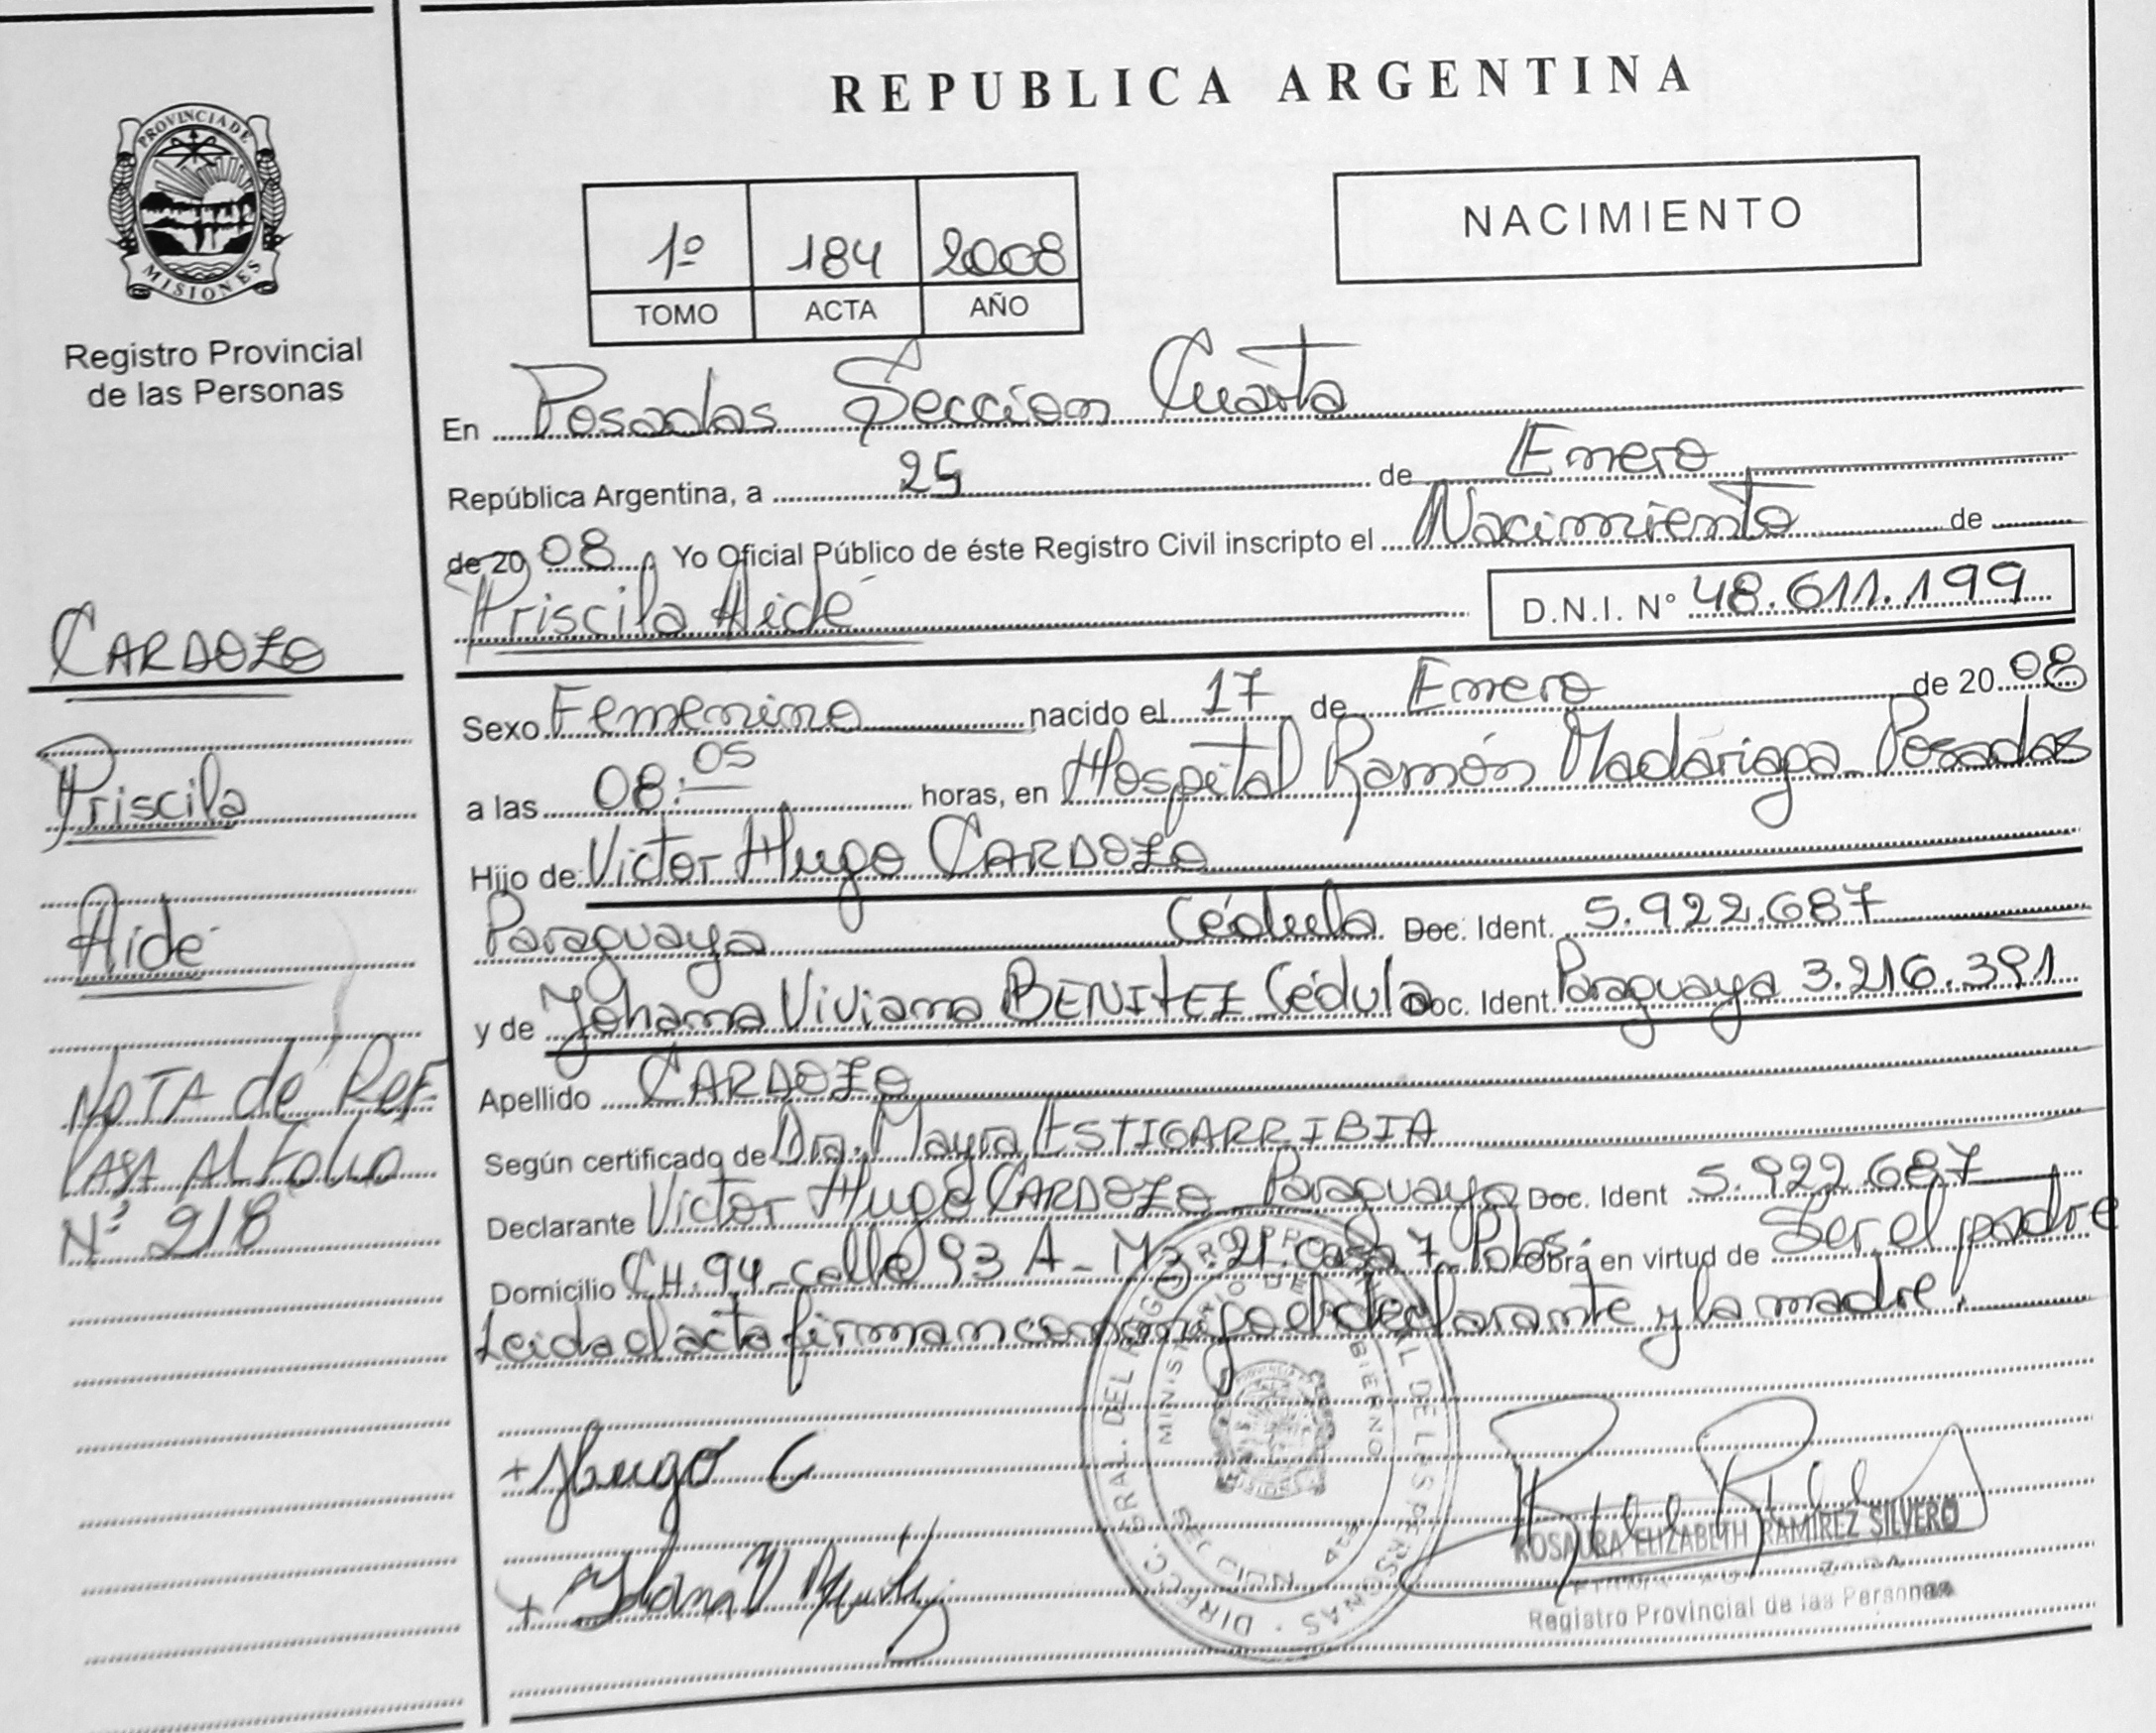 PROVINCIA DE
MISIONES
Registro Provincial
de las Personas
CARDOZO
Priscila
Aidé
NOTA de REF.
PASA AL Folio
Nº 218
REPUBLICA ARGENTINA
1º 184 2008
TOMO ACTA AÑO
NACIMIENTO
En Posadas Seccion Cuarta
República Argentina, a 25 de Enero
de 2008 Yo Oficial Público de éste Registro Civil inscripto el Nacimiento de
Priscila Aidé D.N.I. N° 48.611.199
Sexo Femenino nacido el 17 de Enero de 2008
a las 08:05 horas, en Hospital Ramón Madariaga - Posadas
Hijo de Victor Hugo CARDOZO
Paraguaya Cédula Doc. Ident. 5.922.687
y de Johana Viviana BENITEZ Cédula Doc. Ident. Paraguaya 3.216.391
Apellido CARDOZO
Según certificado de Dra. Mayra ESTIGARRIBIA
Declarante Victor Hugo CARDOZO Paraguaya Doc. Ident 5.922.687
Domicilio CH. 94 - calle 93 A - Mz. 21. casa 7 - Pdas. Obra en virtud de Ser el padre
Leida el acta firman conmigo el declarante y la madre.
+ Hugo C
+
DIRECC. GRAL. DEL REG. PROV. DE LAS PERSONAS
MINISTERIO DE GOBIERNO
ROSAURA ELIZABETH RAMIREZ SILVERO
Registro Provincial de las Personas